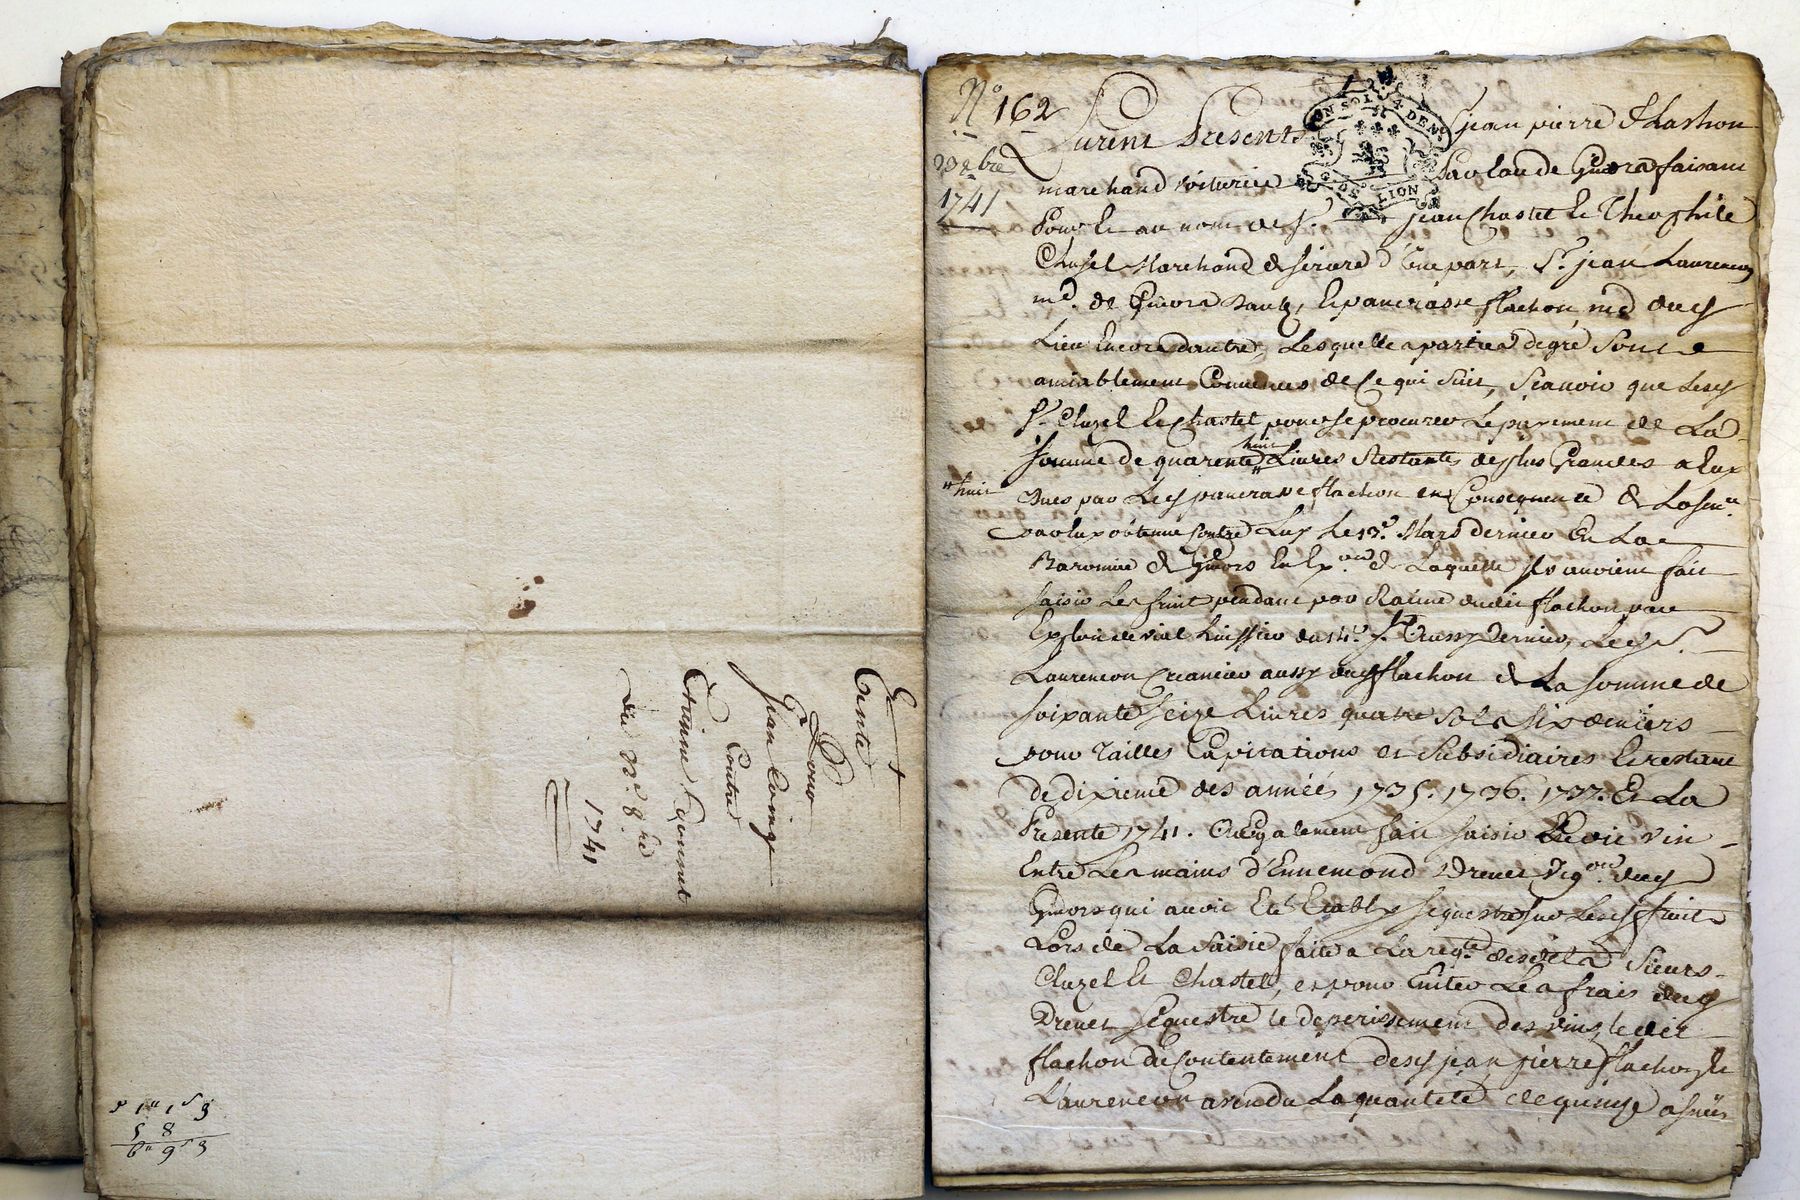 Vente
Pour
Jean Coing
Contre
Etienne
Du 8.bre
1741
N° 162
9bre
1741
Furent Presents jean pierre flachon
marchand voiturier de Givors faisant
Pour et au nom de Sr. jean Chastel et Theophile
Cluzel Marchand de d'une part, Sr. jean Laurencon
md. de Givors Dautre, et pancrasse flachon, md dudit
Lieu Encore dautre, Lesquelles parties de gré Sont
amiablement Convenues de Ce qui Suit, Scavoir que Lesd
Sr. Cluzel et Chastel pour se procurer Le payement de La
Somme de quarente huit Livres Restantes de plus Grandes a Eux
"huit
Dues par Led pancrasse flachon en Consequence de La
par Eux obtenue Contre Luy Le 13e. Mars dernier En La
Baronnie de Givors En de Laquelle ils auroient fait
saisir Les fruit pendant par Racine dudit flachon par
Exploit de huissier du Dernier, Led Sr.
Laurencon Creancier aussy dud flachon de La Somme de
soixante Seize Livres quatre Sols Six deniers
pour Tailles Capitations et Subsidiaires Et restant
de dixieme des années 1735. 1736. 1737. Et La
Presente 1741. Egalement fait saisir vin
Entre Les mains d'Ennemond Drevet Vigon. dud
Givors qui avoit Eté Etably Sequestre sur Lesd fruits
Lors de La Saisie faite a La reqte desdits Sieurs
Cluzel Et Chastel, et pour Eviter Les frais dud
Drevet Sequestre le deperissement des vins, ledit
flachon du Contentement desd jean pierre flachon et
Laurencon a vendu La quantité de quinze asnées